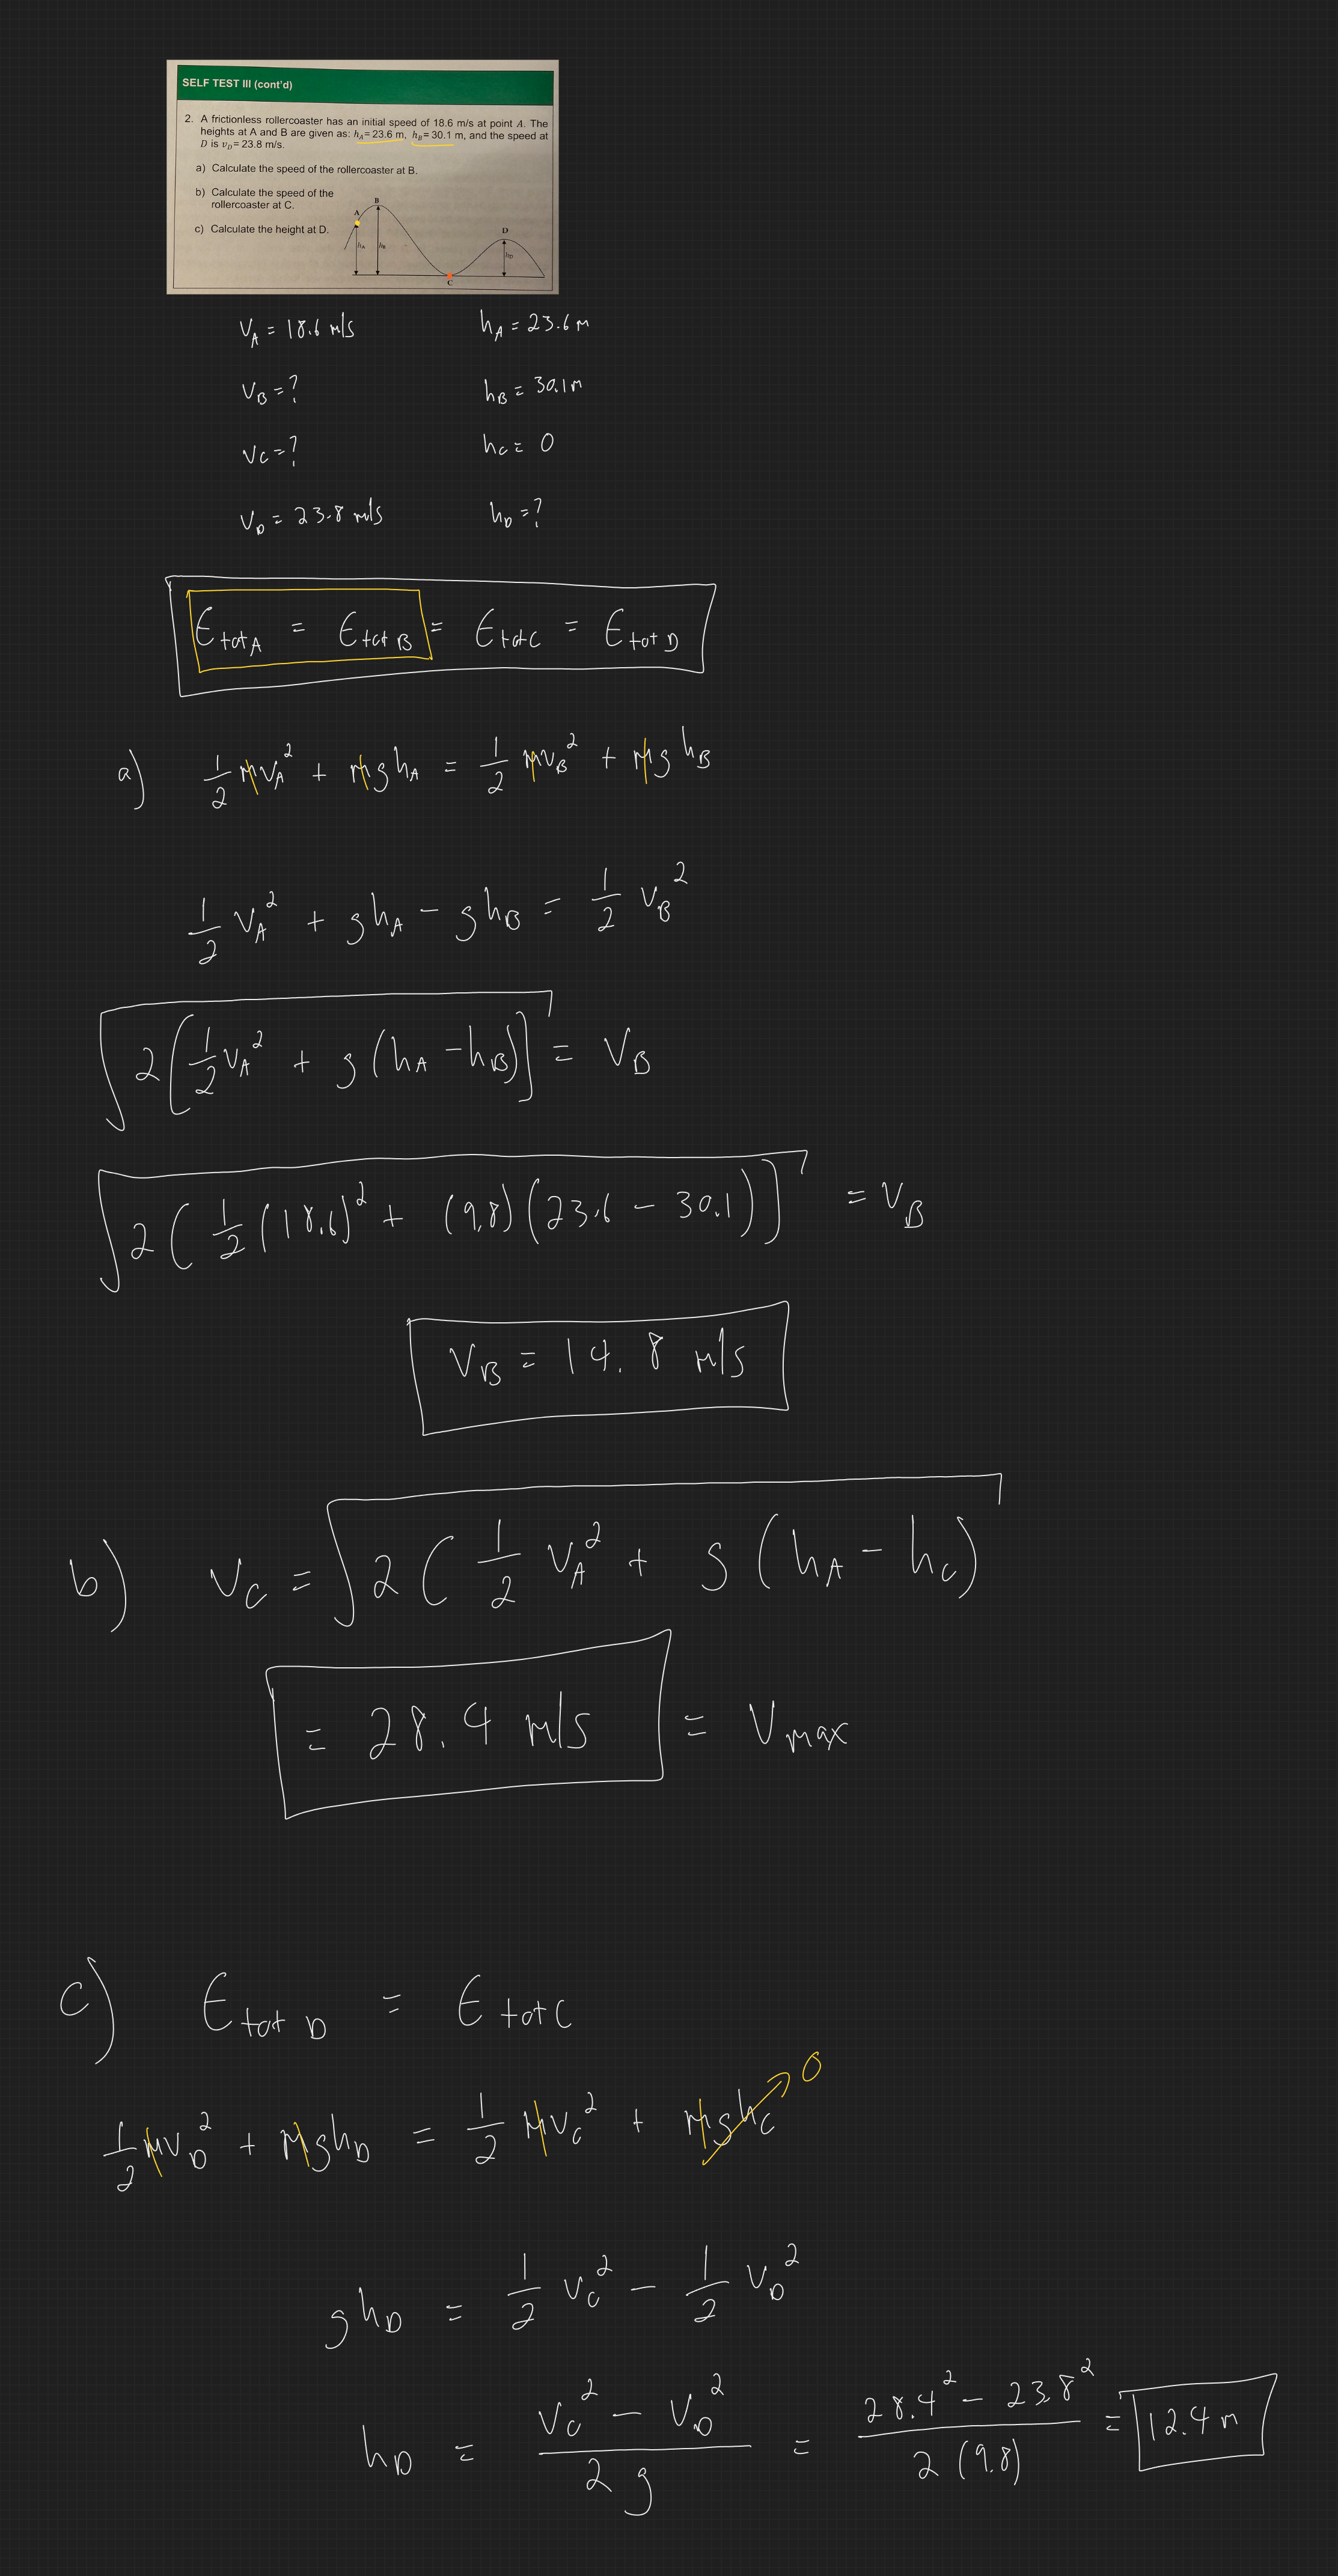 SELF TEST III (cont'd)
2. A frictionless rollercoaster has an initial speed of 18.6 m/s at point A. The
heights at A and B are given as: h_A= 23.6 m, h_B= 30.1 m, and the speed at
D is v_D= 23.8 m/s.
a) Calculate the speed of the rollercoaster at B.
b) Calculate the speed of the
rollercoaster at C.
c) Calculate the height at D.
A
B
h_A
h_B
C
D
h_D
V_A = 18.6 m/s h_A = 23.6 m
V_B = ? h_B = 30.1 m
V_C = ? h_C = 0
V_D = 23.8 m/s h_D = ?
E_tot A = E_tot B = E_tot C = E_tot D
a) 1/2 mv_A² + mgh_A = 1/2 mv_B² + mgh_B
1/2 v_A² + gh_A − gh_B = 1/2 v_B²
√2[1/2 v_A² + g(h_A − h_B)] = V_B
√2(1/2 (18.6)² + (9.8)(23.6 − 30.1)] = V_B
V_B = 14.8 m/s
b) V_C = √2(1/2 V_A² + g(h_A − h_C)
= 28.4 m/s = V_max
c) E_tot D = E_tot C
1/2 mv_D² + mgh_D = 1/2 mv_C² + mgh_C 0
gh_D = 1/2 v_C² − 1/2 v_D²
h_D = (v_C² − v_D²)/2g = (28.4² − 23.8²)/2(9.8) = 12.4 m